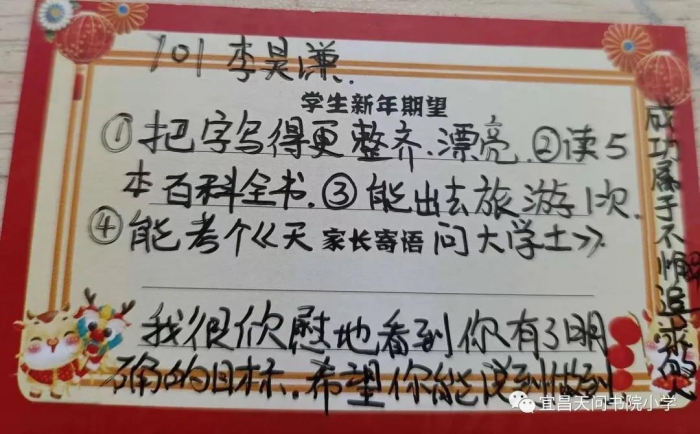 101 李昊谦.
学生新年期望
①把字写得更整齐.漂亮.②读5
本百科全书.③能出去旅游1次.
④能考个《天问大学士》
家长寄语
我很欣慰地看到你有了明
确的目标.希望你能说到做到
成功属于不懈追求的人
宜昌天问书院小学